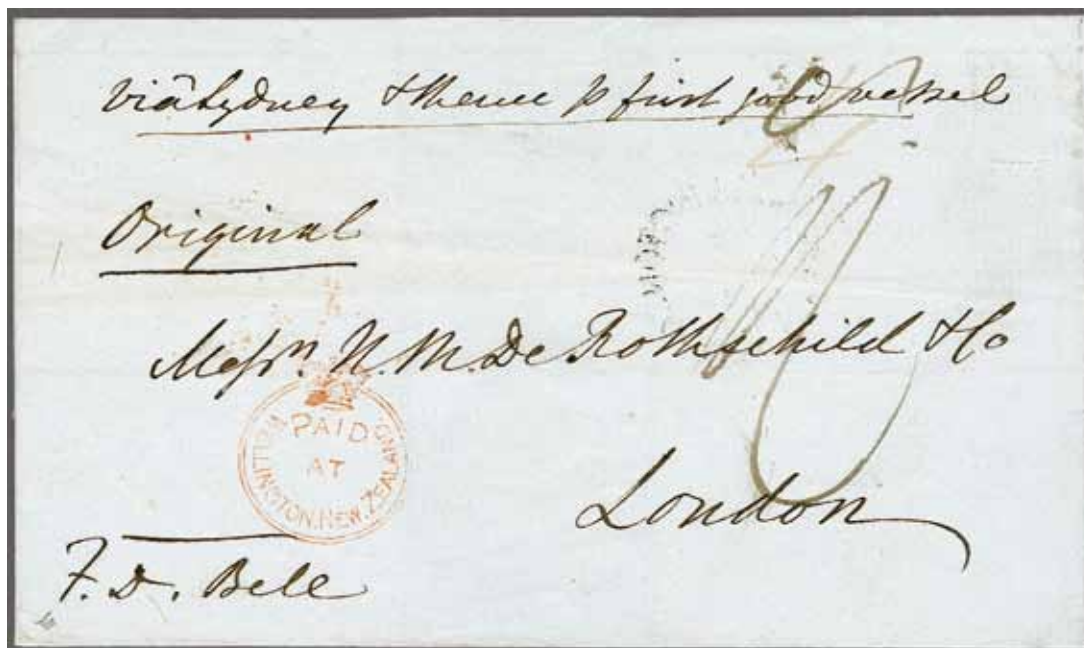 viâ Sydney & thence p first good vessel
Original
Messrs. N. M. De Rothschild & Co
PAID
AT
WELLINGTON. NEW. ZEALAND.
London
F. D. Bell